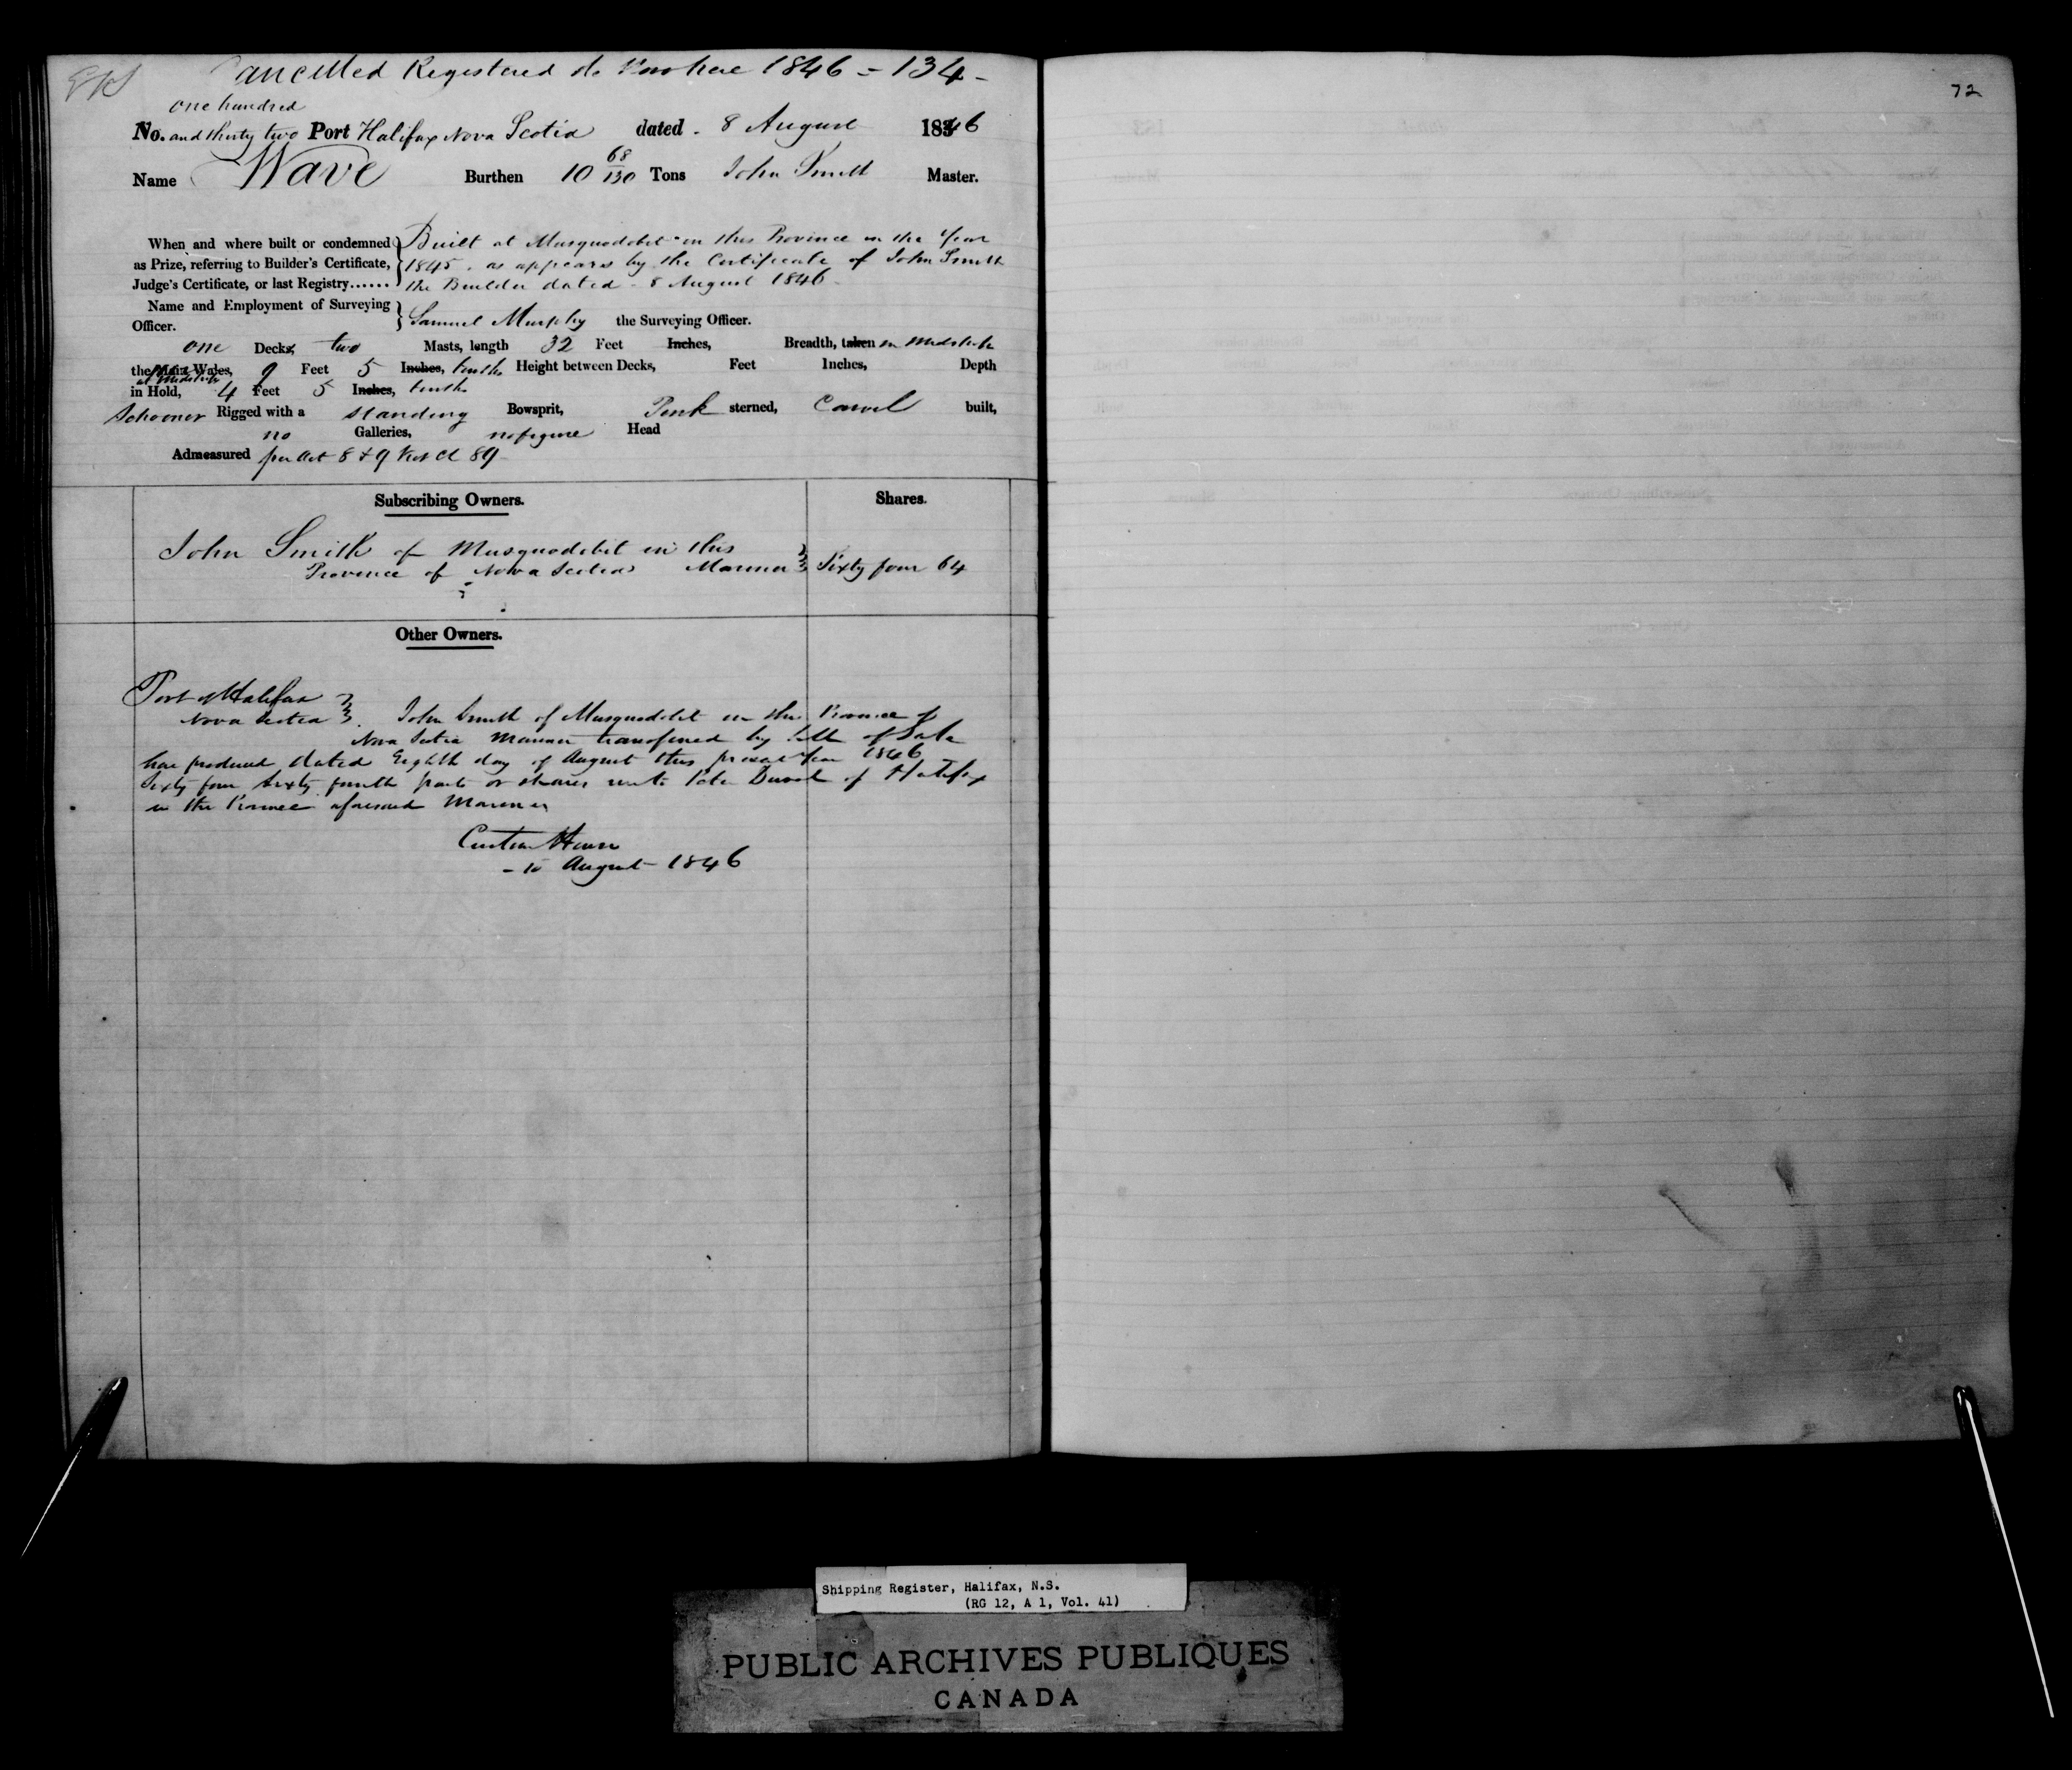 Cancelled Registered de Novo here 1846 = 134 -
one hundred
No. and thirty two Port Halifax Nova Scotia dated - 8 August 1846
Name Wave Burthen 10 68/130 Tons John Smith Master.
When and where built or condemned Built at Musquodobit in this Province in the Year
as Prize, referring to Builder's Certificate, 1845. as appears by the Certificate of John Smith
Judge's Certificate, or last Registry...... the Builder dated - 8 August 1846 -
Name and Employment of Surveying
Officer. Samuel Murphy the Surveying Officer.
one Decks, two Masts, length 32 Feet Inches, Breadth, taken in midships
the Main Wales, 9 Feet 5 Inches, tenths Height between Decks, Feet Inches, Depth
at Midships
in Hold, 4 Feet 5 Inches, tenths
Schooner Rigged with a standing Bowsprit, Pink sterned, Carvel built,
no Galleries, no figure Head
Admeasured per Act 8 & 9 Vict Cl 89
Subscribing Owners. Shares.
John Smith of Musquodobit in this
Province of Nova Scotia Mariner Sixty four 64
Other Owners.
Port of Halifax
Nova Scotia John Smith of Musquodobit in this Province of
Nova Scotia Mariner transfered by bill of Sale
here produced dated Eighth day of August this present Year 1846
Sixty four Sixty fourth parts or shares unto Peter of Halifax
in the Province aforesaid Mariner
Custom House
- 10 August 1846
72
Shipping Register, Halifax, N.S.
(RG 12, A 1, Vol. 41)
PUBLIC ARCHIVES PUBLIQUES
CANADA